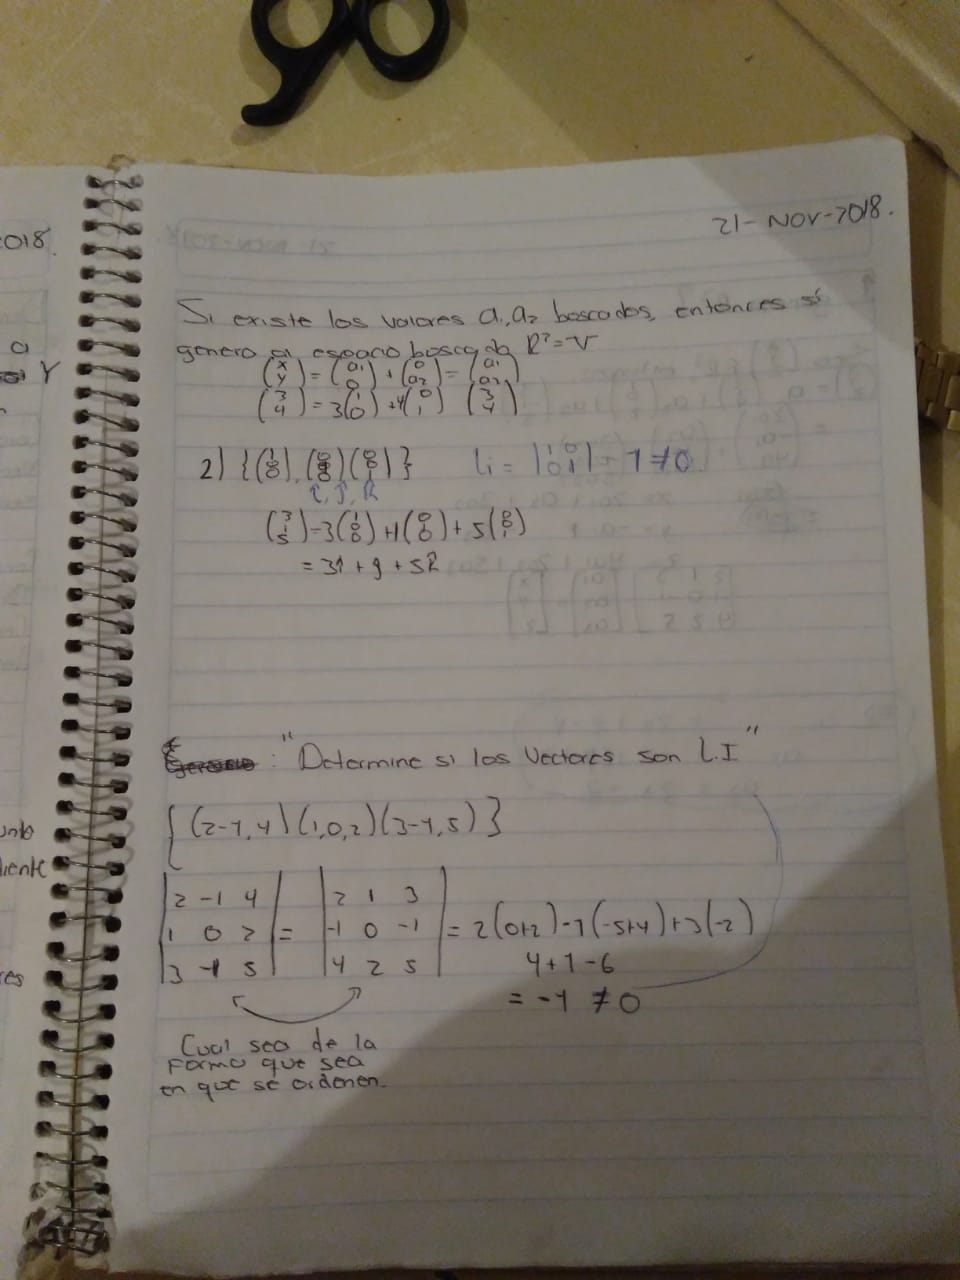 21-NOV-2018.
2018.
Si existe los valores a₁, a₂ boscados, entonces si
genero al espacio boscado R²=V
(x y) = (a₁ 0) + (0 a₂) = (a₁ a₂)
(3 4) = 3(1 0) + 4(0 1) (3 4)
2) {(1 0 0), (0 1 0) (0 0 1)} Li = |1 0 0 1| = 1 ≠ 0
î, ĵ, k̂
(3 1 5) = 3(1 0 0) + 1(0 1 0) + 5(0 0 1)
= 3î + ĵ + 5k̂
: "Determine si los vectores son L.I"
{(2-1,4) (1,0,2) (3-1,5)}
|2 -1 4| = |2 1 3|
|1 0 2| = |-1 0 -1| = 2(0+2)-1(-5+4)+3(-2)
|3 -1 5| |4 2 5| 4+1-6
= -1 ≠ 0
Cual sea de la
forma que sea
en que se ordenen.